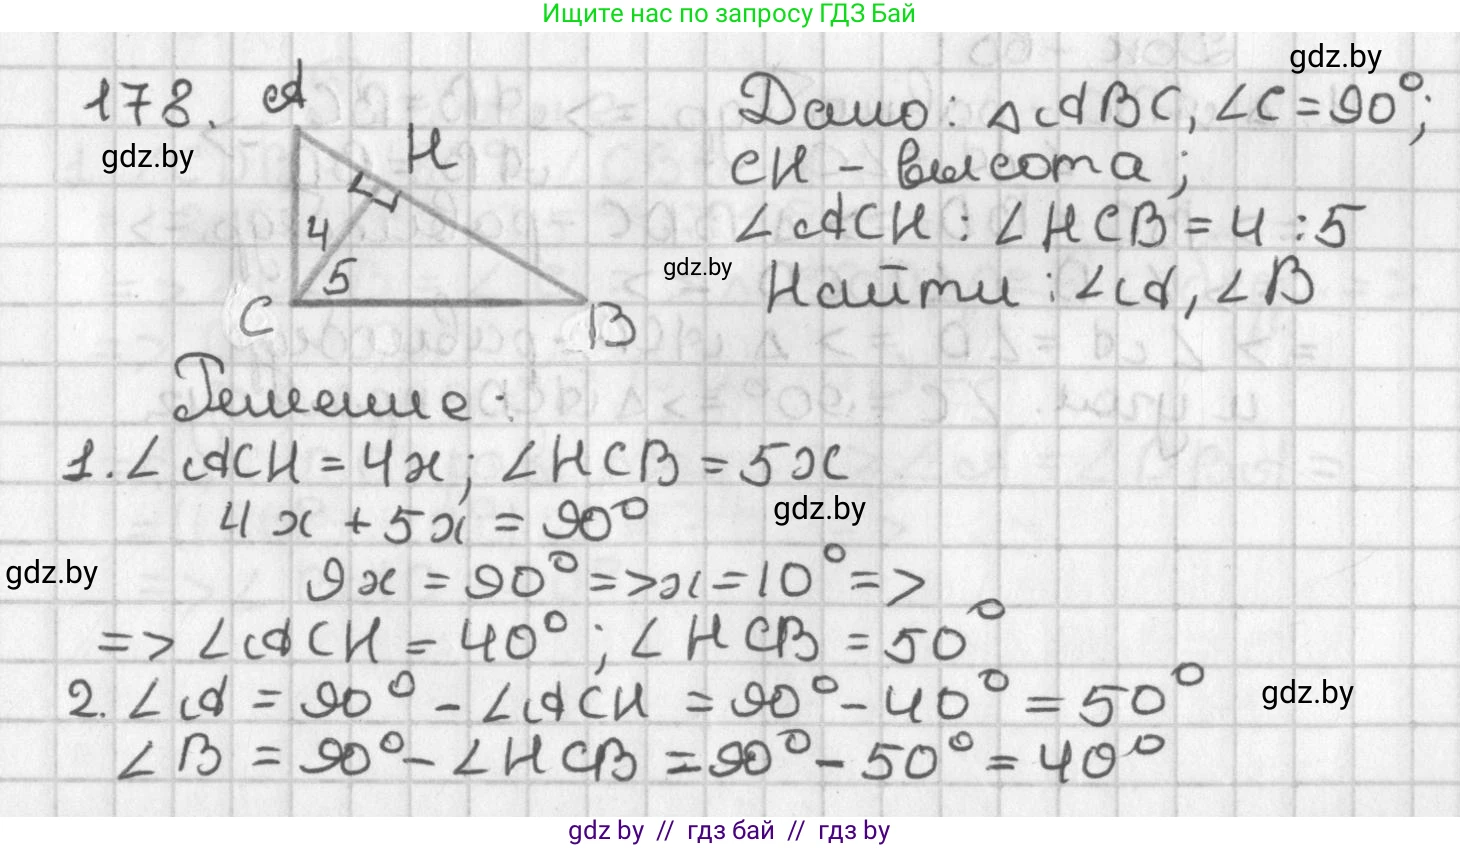 Ищите нас по запросу ГДЗ Бай
gdz.by
178. A
H
gdz.by
4
5
C
B
Дано: △ABC, ∠C = 90°;
CH - высота;
∠ACH : ∠HCB = 4 : 5
gdz.by
Найти: ∠A, ∠B
Решение:
1. ∠ACH = 4x; ∠HCB = 5x
4x + 5x = 90°
gdz.by
gdz.by
9x = 90° => x = 10° =>
=> ∠ACH = 40°; ∠HCB = 50°
2. ∠A = 90° - ∠ACH = 90° - 40° = 50°
gdz.by
∠B = 90° - ∠HCB = 90° - 50° = 40°
gdz by // гдз бай // гдз by